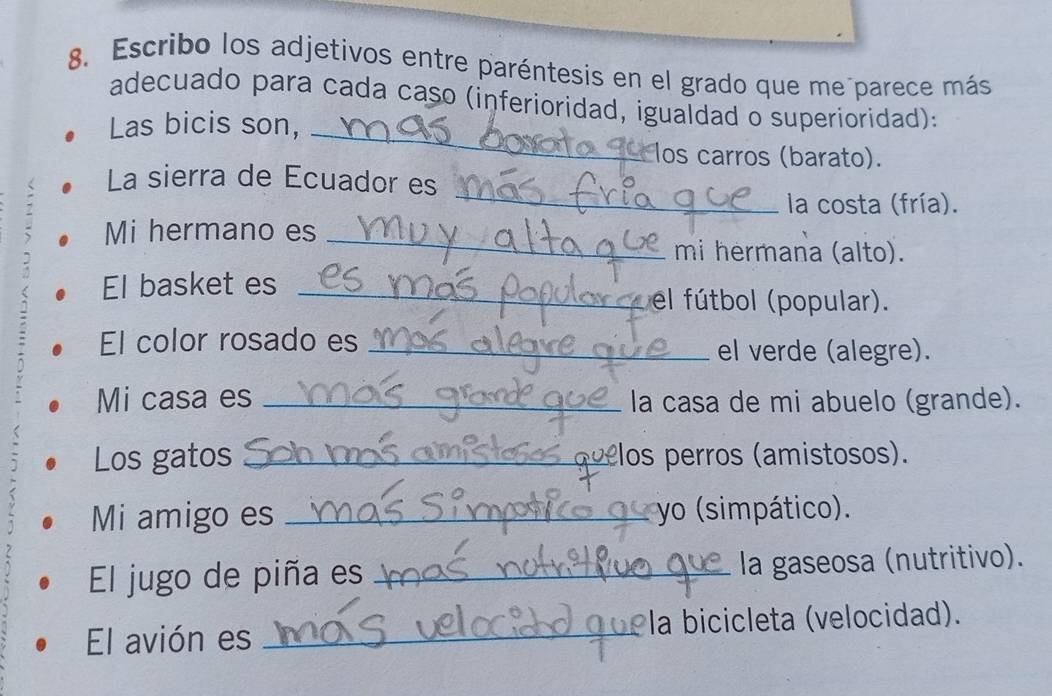 8. Escribo los adjetivos entre paréntesis en el grado que me parece más
adecuado para cada caso (inferioridad, igualdad o superioridad):
• Las bicis son, más barata que los carros (barato).
• La sierra de Ecuador es más fría que la costa (fría).
• Mi hermano es muy alta que mi hermana (alto).
• El basket es es más popular que el fútbol (popular).
• El color rosado es más alegre que el verde (alegre).
• Mi casa es más grande que la casa de mi abuelo (grande).
• Los gatos Son más amistosos que los perros (amistosos).
• Mi amigo es más simpatico que yo (simpático).
• El jugo de piña es más nutritivo que la gaseosa (nutritivo).
• El avión es más velocidad que la bicicleta (velocidad).
PROHIBIDA SU VENTA